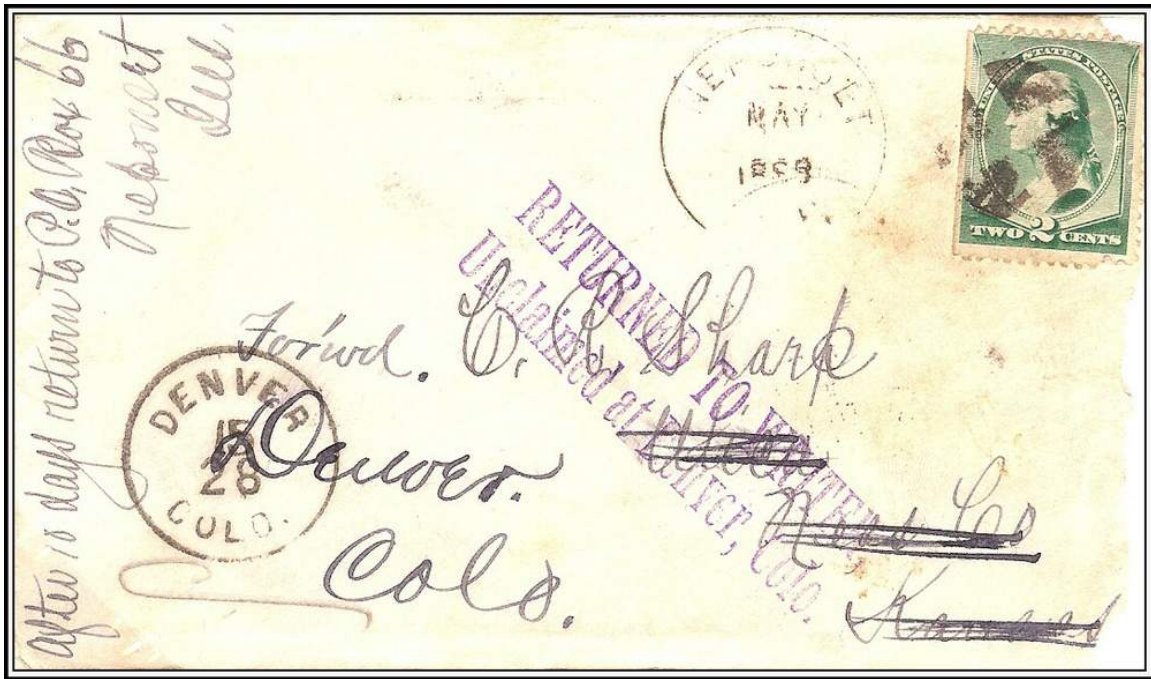 after 10 days return to P.O. Box 66
Neponset
Ill.
NEPONSET
MAY
UNITED STATES POSTAGE
TWO 2 CENTS
RETURNED TO WRITER
Unclaimed at Denver, Colo.
For'wd. C. Sharp
Denver.
Colo.
Ness Co
Kansas
DENVER
28
COLO.